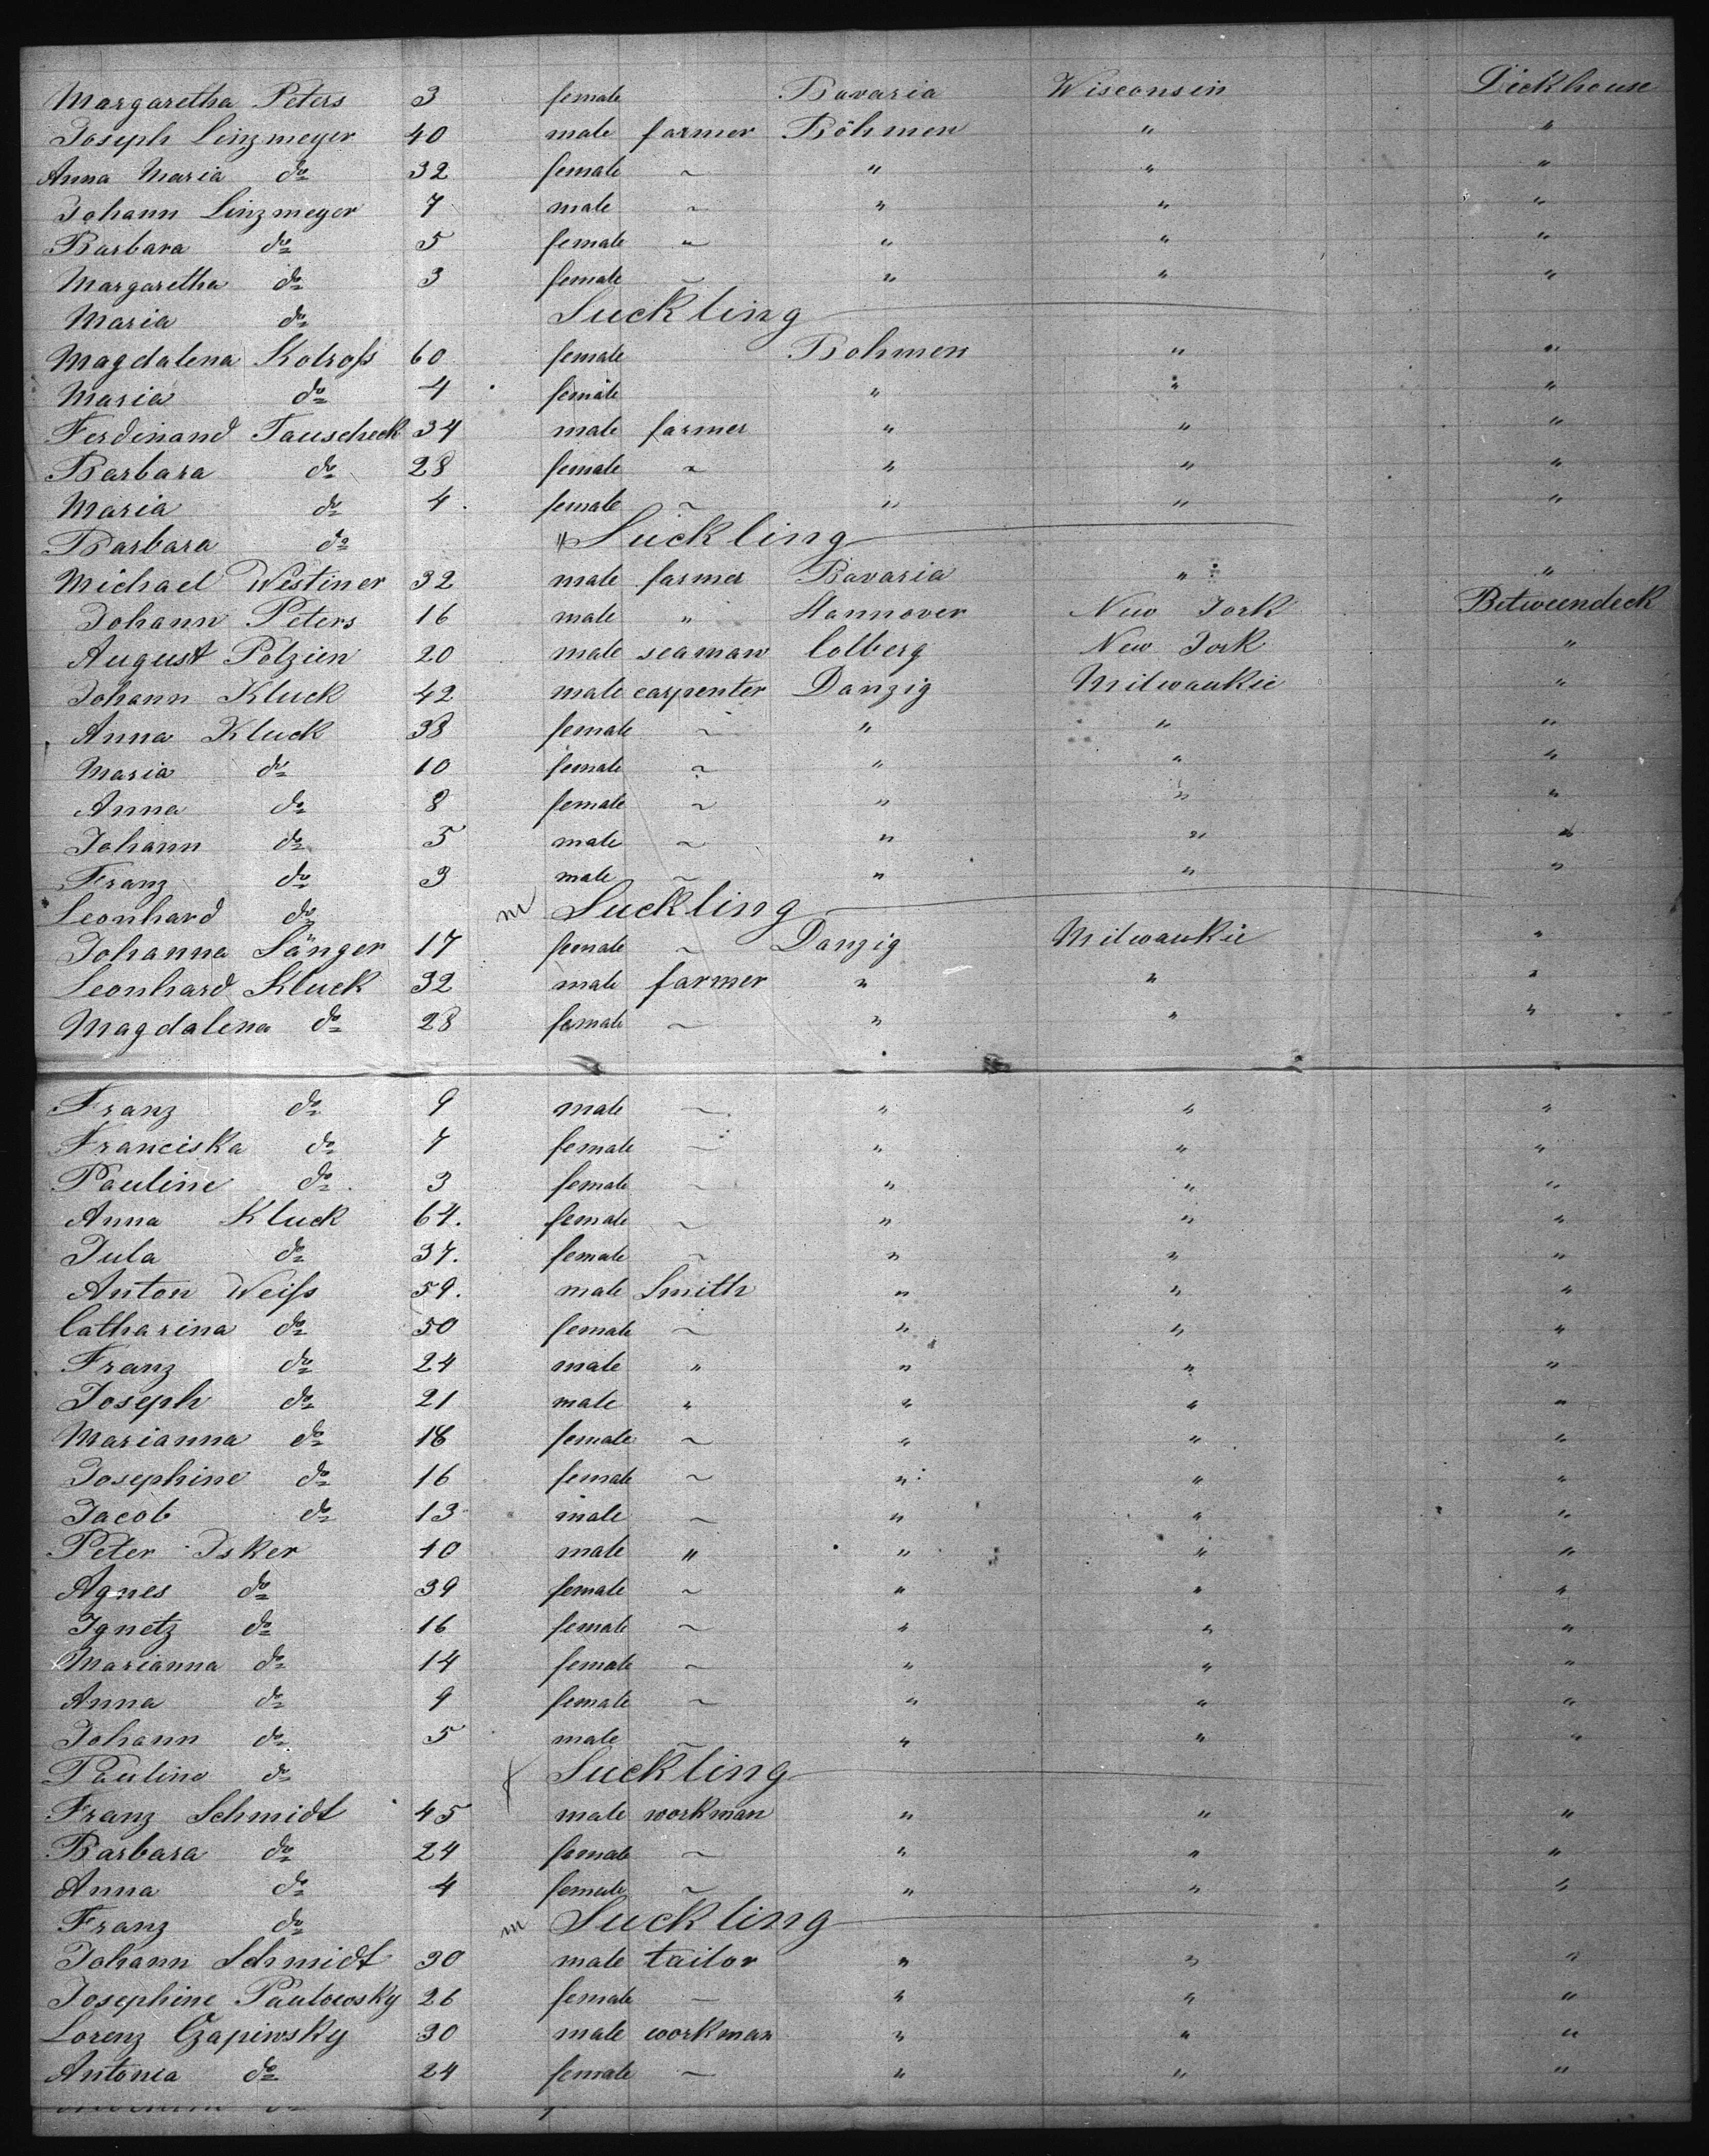 Margaretha Peters 3 female Bavaria Wisconsin Dickhouse
Joseph Linzmeyer 40 male farmer Böhmen " "
Anna Maria do 32 female ~ " " "
Johann Linzmeyer 7 male ~ " " "
Barbara do 5 female ~ " " "
Margaretha do 3 female ~ " " "
Maria do Suckling
Magdalena Kolross 60 female Bohmen " "
Maria do 4 female " " "
Ferdinand Tauscheck 34 male farmer " " "
Barbara do 28 female ~ " " "
Maria do 4 female ~ " " "
Barbara do " Suckling
Michael Westiner 32 male farmer Bavaria " "
Johann Peters 16 male " Hannover New York Betweendeck
August Polzien 20 male seaman Colberg New York "
Johann Kluck 42 male carpenter Danzig Milwaukie "
Anna Kluck 38 female ~ " " "
Maria do 10 female ~ " " "
Anna do 8 female ~ " " "
Johann do 5 male ~ " " "
Franz do 3 male ~ " " "
Leonhard do m Suckling
Johanna Sänger 17 female ~ Danzig Milwaukie "
Leonhard Kluck 32 male farmer " " "
Magdalena do 28 female ~ " " "
Franz do 9 male ~ " " "
Franciska do 7 female ~ " " "
Pauline do 3 female ~ " " "
Anna Kluck 64. female ~ " " "
Jula do 37. female ~ " " "
Anton Weiss 59. male Smith " " "
Catharina do 50 female ~ " " "
Franz do 24 male " " " "
Joseph do 21 male " " " "
Marianna do 18 female ~ " " "
Josephine do 16 female ~ " " "
Jacob do 13 male ~ " " "
Peter Isker 40 male " " " "
Agnes do 39 female ~ " " "
Ignetz do 16 female ~ " " "
Marianna do 14 female ~ " " "
Anna do 9 female ~ " " "
Johann do 5 male ~ " " "
Pauline do f Suckling
Franz Schmidt 45 male workman " " "
Barbara do 24 female ~ " " "
Anna do 4 female ~ " " "
Franz do m Suckling
Johann Schmidt 30 male tailor " " "
Josephine Paulowsky 26 female — " " "
Lorenz Czapiwsky 30 male workman " " "
Antonia do 24 female ~ " " "